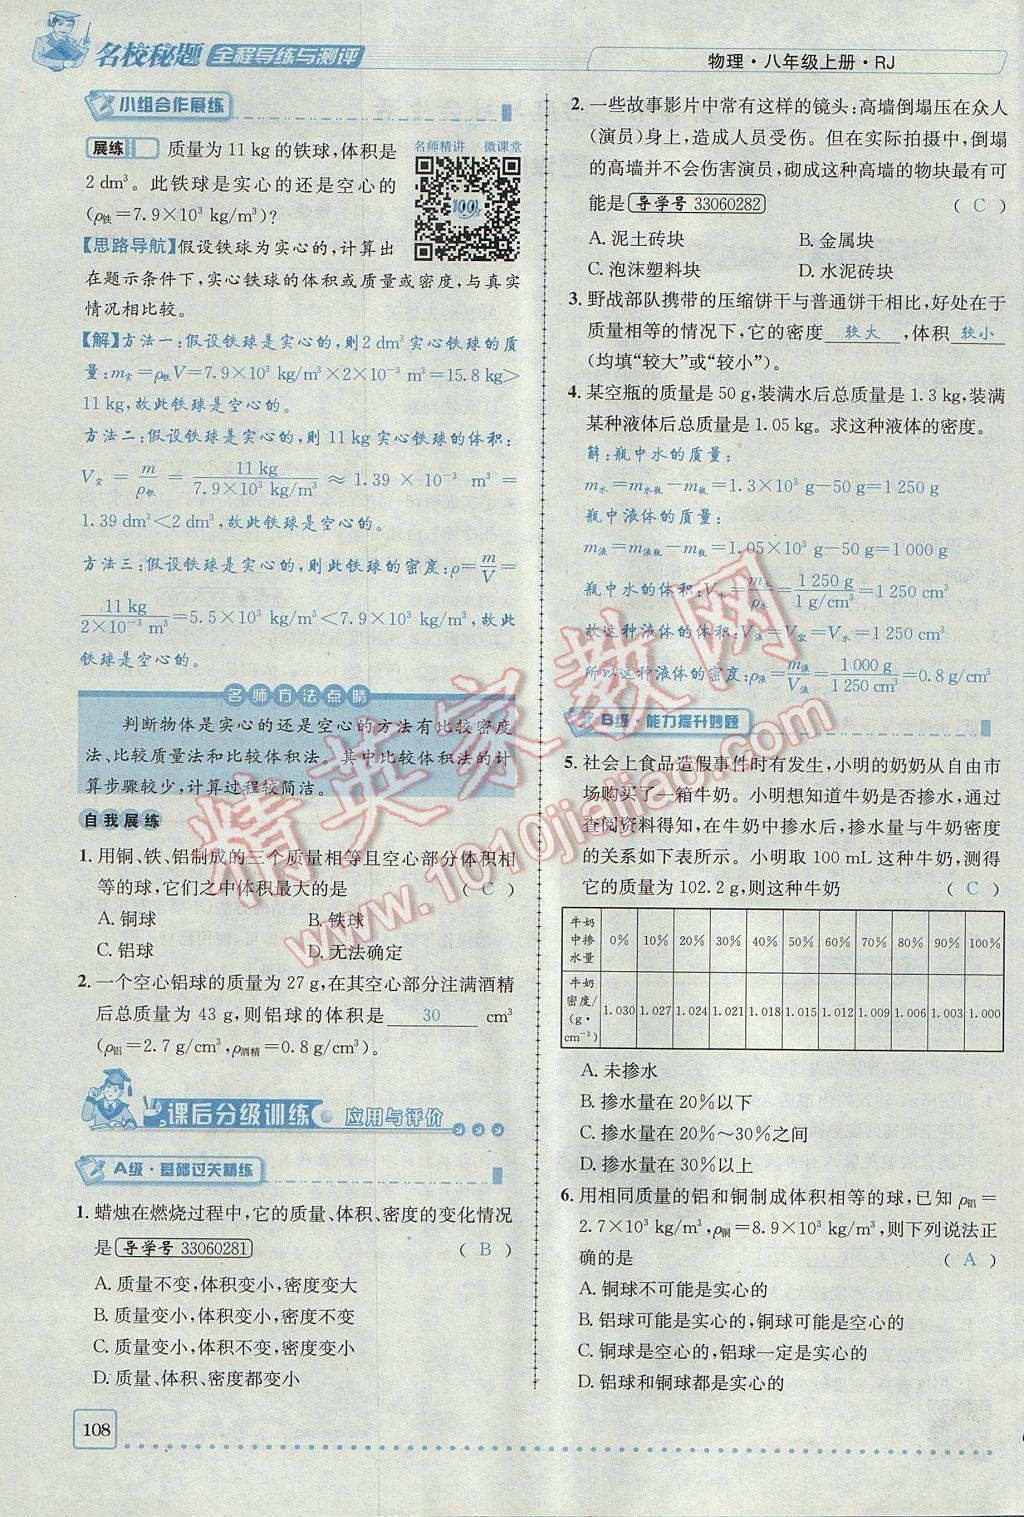 名校秘题 全程导练与测评
物理·八年级上册·RJ
小组合作展练
名师精讲 微课堂
展练 质量为11 kg的铁球,体积是
2 dm³。此铁球是实心的还是空心的
(ρ铁=7.9×10³ kg/m³)?
【思路导航】假设铁球为实心的,计算出
在题示条件下,实心铁球的体积或质量或密度,与真实
情况相比较。
【解】方法一:假设铁球是实心的,则2 dm³实心铁球的质
量:m实=ρ铁V=7.9×10³ kg/m³×2×10⁻³ m³=15.8 kg>
11 kg,故此铁球是空心的。
方法二:假设铁球是实心的,则11 kg实心铁球的体积:
V实=m/ρ铁=11 kg/7.9×10³ kg/m³≈1.39×10⁻³ m³=
1.39 dm³<2 dm³,故此铁球是空心的。
方法三:假设铁球是实心的,则此铁球的密度:ρ=m/V=
11 kg/2×10⁻³ m³=5.5×10³ kg/m³<7.9×10³ kg/m³,故此
铁球是空心的。
名师方法点睛
判断物体是实心的还是空心的方法有比较密度
法、比较质量法和比较体积法。其中比较体积法的计
算步骤较少,计算过程较简洁。
自我展练
1. 用铜、铁、铝制成的三个质量相等且空心部分体积相
等的球,它们之中体积最大的是 ( C )
A. 铜球 B. 铁球
C. 铝球 D. 无法确定
2. 一个空心铝球的质量为27 g,在其空心部分注满酒精
后总质量为43 g,则铝球的体积是 30 cm³
(ρ铝=2.7 g/cm³,ρ酒精=0.8 g/cm³)。
课后分级训练 应用与评价
A级·基础过关精练
1. 蜡烛在燃烧过程中,它的质量、体积、密度的变化情况
是 导学号 33060281 ( B )
A. 质量不变,体积变小,密度变大
B. 质量变小,体积变小,密度不变
C. 质量变小,体积不变,密度变小
D. 质量、体积、密度都变小
108
2. 一些故事影片中常有这样的镜头:高墙倒塌压在众人
(演员)身上,造成人员受伤。但在实际拍摄中,倒塌
的高墙并不会伤害演员,砌成这种高墙的物块最有可
能是 导学号 33060282 ( C )
A. 泥土砖块 B. 金属块
C. 泡沫塑料块 D. 水泥砖块
3. 野战部队携带的压缩饼干与普通饼干相比,好处在于
质量相等的情况下,它的密度 较大 ,体积 较小
(均填“较大”或“较小”)。
4. 某空瓶的质量是50 g,装满水后总质量是1.3 kg,装满
某种液体后总质量是1.05 kg。求这种液体的密度。
解:瓶中水的质量:
m水=m水瓶-m瓶=1.3×10³ g-50 g=1 250 g
瓶中液体的质量:
m液=m液瓶-m瓶=1.05×10³ g-50 g=1 000 g
瓶中水的体积:V水=m水/ρ水=1 250 g/1 g/cm³=1 250 cm³
故这种液体的体积:V液=V容=V水=1 250 cm³
所以这种液体的密度:ρ液=m液/V液=1 000 g/1 250 cm³=0.8 g/cm³
B级·能力提升妙题
5. 社会上食品造假事件时有发生,小明的奶奶从自由市
场购买了一箱牛奶。小明想知道牛奶是否掺水,通过
查阅资料得知,在牛奶中掺水后,掺水量与牛奶密度
的关系如下表所示。小明取100 mL这种牛奶,测得
它的质量为102.2 g,则这种牛奶 ( C )
牛奶中掺水量 0% 10% 20% 30% 40% 50% 60% 70% 80% 90% 100%
牛奶密度/(g·cm⁻³) 1.030 1.027 1.024 1.021 1.018 1.015 1.012 1.009 1.006 1.003 1.000
A. 未掺水
B. 掺水量在20%以下
C. 掺水量在20%～30%之间
D. 掺水量在30%以上
6. 用相同质量的铝和铜制成体积相等的球,已知ρ铝=
2.7×10³ kg/m³,ρ铜=8.9×10³ kg/m³,则下列说法正
确的是 ( A )
A. 铜球不可能是实心的
B. 铝球可能是空心的,铜球可能是空心的
C. 铜球是空心的,铝球一定是实心的
D. 铝球和铜球都是实心的
精英家教网
www.1010jiajiao.com